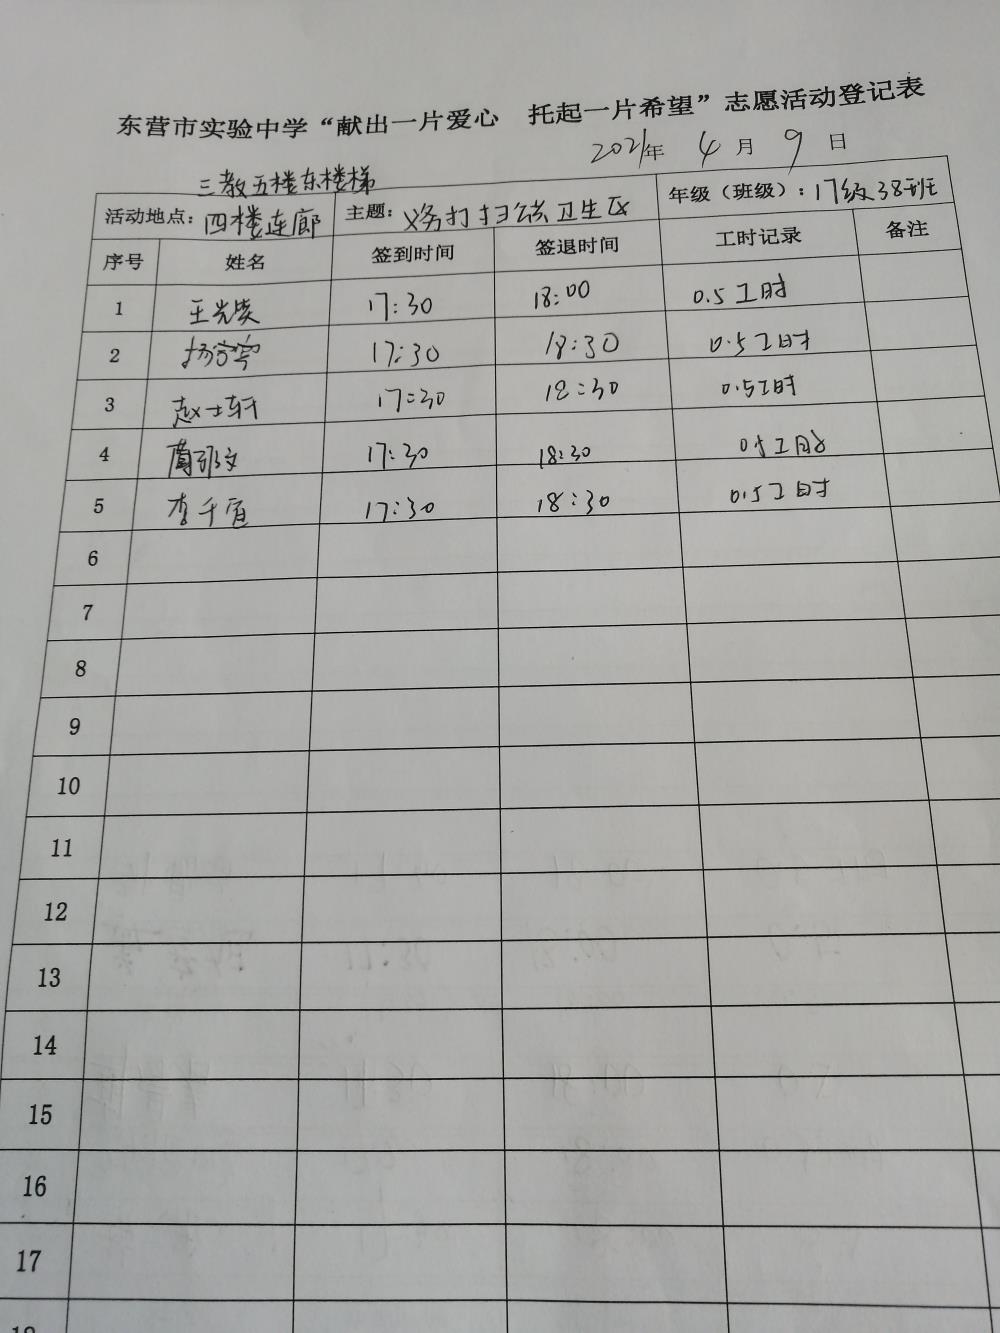 东营市实验中学“献出一片爱心 托起一片希望”志愿活动登记表
2021年 4 月 9 日
三教五楼东楼梯
活动地点: 四楼连廊 主题: 义务打扫公共卫生区 年级(班级): 17级38班
序号 姓名 签到时间 签退时间 工时记录 备注
1 17:30 18:00 0.5工时
2 17:30 18:30 0.5工时
3 赵士轩 17:30 18:30 0.5工时
4 17:30 18:30 0.5工时
5 李千宜 17:30 18:30 0.5工时
6
7
8
9
10
11
12
13
14
15
16
17